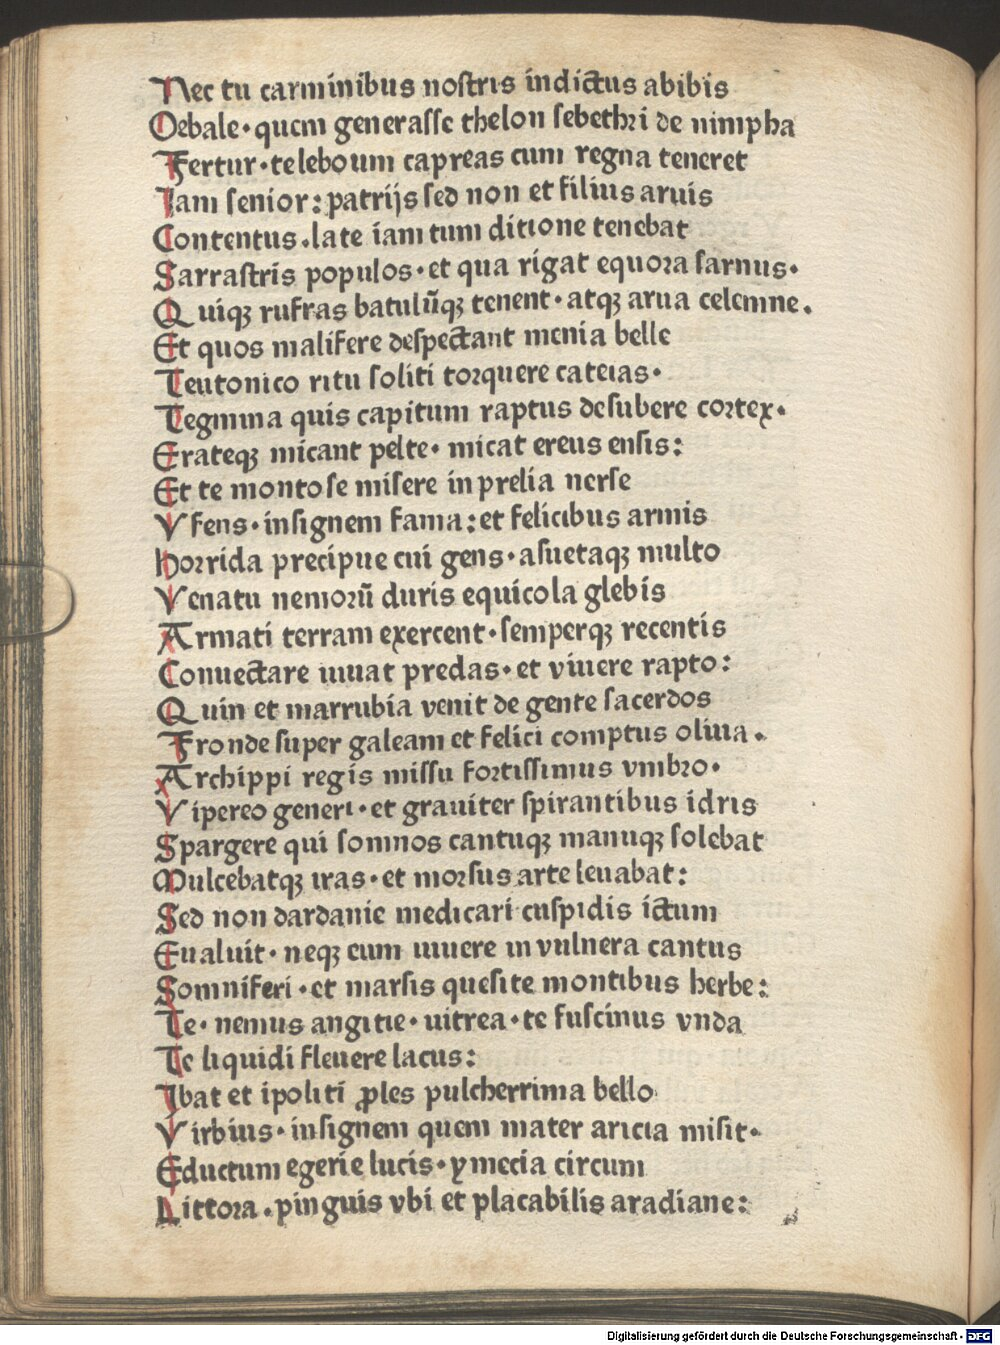 Nec tu carminibus nostris indictus abibis
Oebale·quem generasse thelon sebethri de nimpha
Fertur·teleboum capreas cum regna teneret
Iam senior:patrijs sed non et filius aruis
Contentus·late iam tum ditione tenebat
Sarrastris populos·et qua rigat equora sarnus·
Quiqꝫ rufras batulūqꝫ tenent·atqꝫ arua celemne.
Et quos malifere despectant menia belle
Teutonico ritu soliti torquere cateias·
Tegmina quis capitum raptus desubere cortex·
Erateqꝫ micant pelte·micat ereus ensis:
Et te montose misere in prelia nerse
Vfens·insignem fama:et felicibus armis
Horrida precipue cui gens·asuetaqꝫ multo
Venatu nemorū duris equicola glebis
Armati terram exercent·semperqꝫ recentis
Conuectare iuuat predas·et viuere rapto:
Quin et marrubia venit de gente sacerdos
Fronde super galeam et felici comptus oliua·
Archippi regis missu fortissimus vmbro·
Vipereo generi·et grauiter spirantibus idris
Spargere qui somnos cantuqꝫ manuqꝫ solebat
Mulcebatqꝫ iras·et morsus arte leuabat:
Sed non dardanie medicari cuspidis ictum
Eualuit·neqꝫ eum iuuere in vulnera cantus
Somniferi·et marsis quesite montibus herbe:
Te·nemus angitie·uitrea·te fuscinus vnda
Te liquidi fleuere lacus:
Ibat et ipoliti ꝓles pulcherrima bello
Virbius·insignem quem mater aricia misit·
Eductum egerie lucis·ymecia circum
Littora·pinguis vbi et placabilis aradiane:
Digitalisierung gefördert durch die Deutsche Forschungsgemeinschaft - DFG